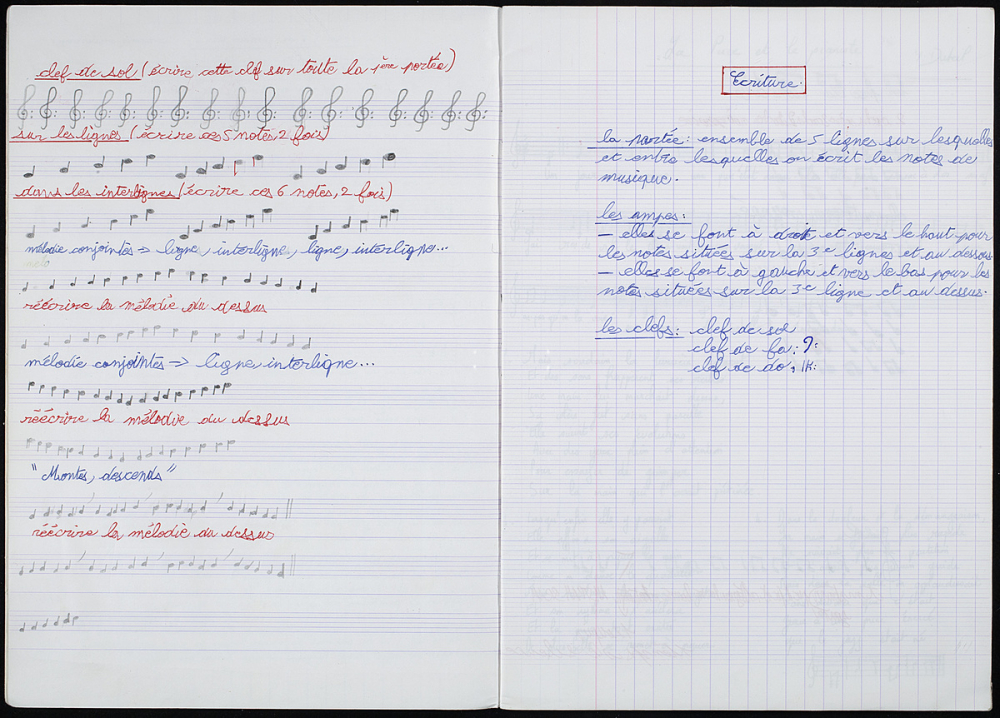 clef de sol (écrire cette clef sur toute la 1ère portée)
sur les lignes (écrire ces 5 notes, 2 fois)
dans les interlignes (écrire ces 6 notes, 2 fois)
mélodie conjointes => ligne, interligne, ligne, interligne...
réécrire la mélodie du dessus
mélodie conjointes -> ligne interligne...
réécrire la mélodie du dessus
"Montes, descends"
réécrire la mélodie du dessus
Ecriture.
la portée : ensemble de 5 lignes sur lesquelles
et entre lesquelles on écrit les notes de
musique.
les ampes :
— elles se font à droite et vers le haut pour
les notes situées sur la 3e lignes et au dessous
— elles se font à gauche et vers le bas pour les
notes situées sur la 3e ligne et au dessus.
les clefs : clef de sol
clef de fa :
clef de do,